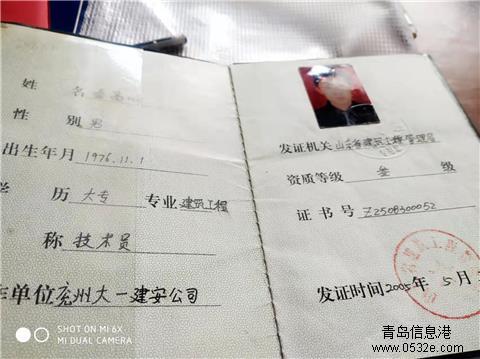 姓 名
性 别 男
出生年月 1976.11.1
学 历 大专 专业 建筑工程
称 技术员
作单位 兖州大一建安公司
发证机关 山东省建筑工程管理局
资质等级 叁 级
证书号 Z2508300052
发证时间 2005年 5月
SHOT ON MI 6X
MI DUAL CAMERA
青岛信息港
www.0532e.com